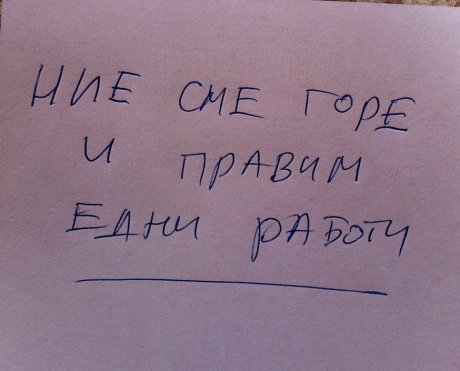 НИЕ СМЕ ГОРЕ
И ПРАВИМ
ЕДНИ РАБОТИ